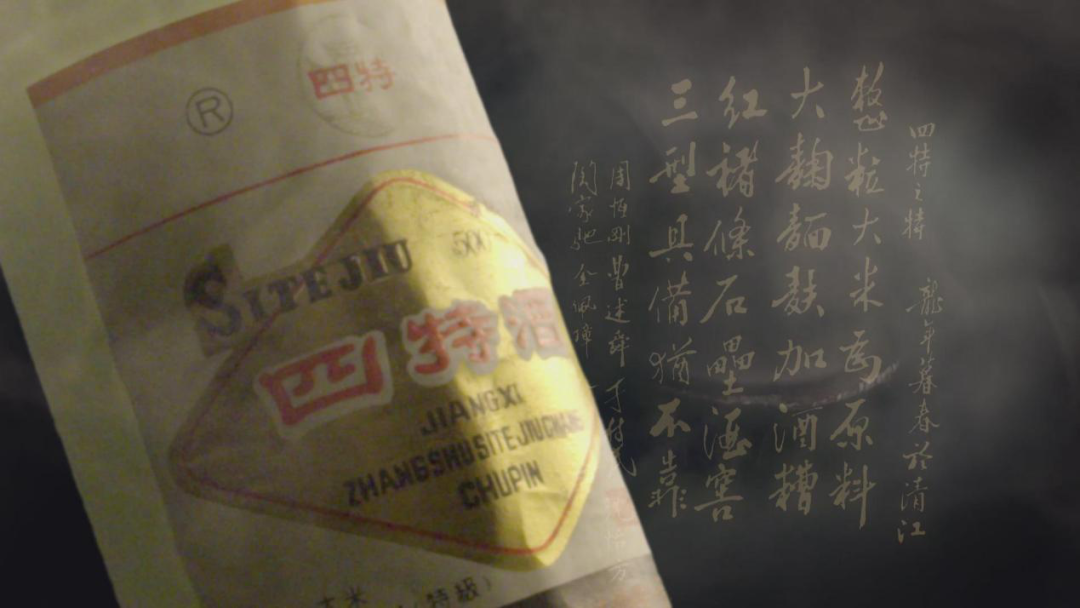 四特
®
SITE JIU
500
四特酒
JIANGXI
ZHANGSHUSITEJIUCHANG
CHUPIN
大米
(特級)
四特之特 龍年暮春於清江
整粒大米為原料
大麯麵麩加酒糟
紅褚條石壘酒窖
三型具備猶不靠
周恒剛 曹述舜 丁
家 沈